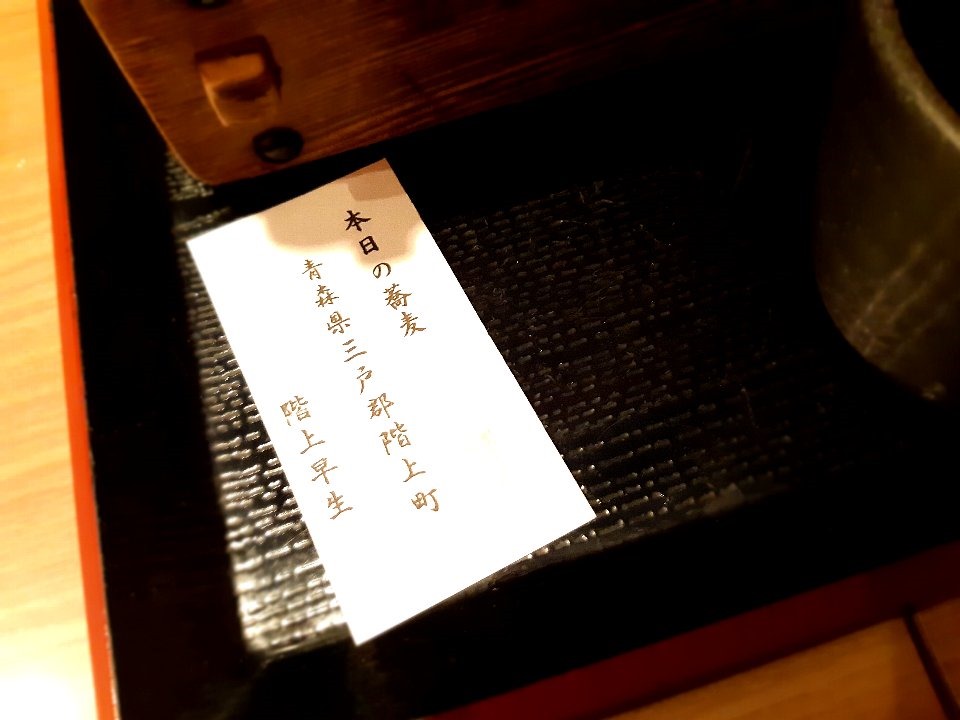 本日の蕎麦
青森県三戸郡階上町
階上早生